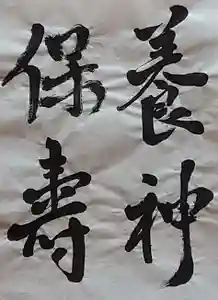 養神
保壽